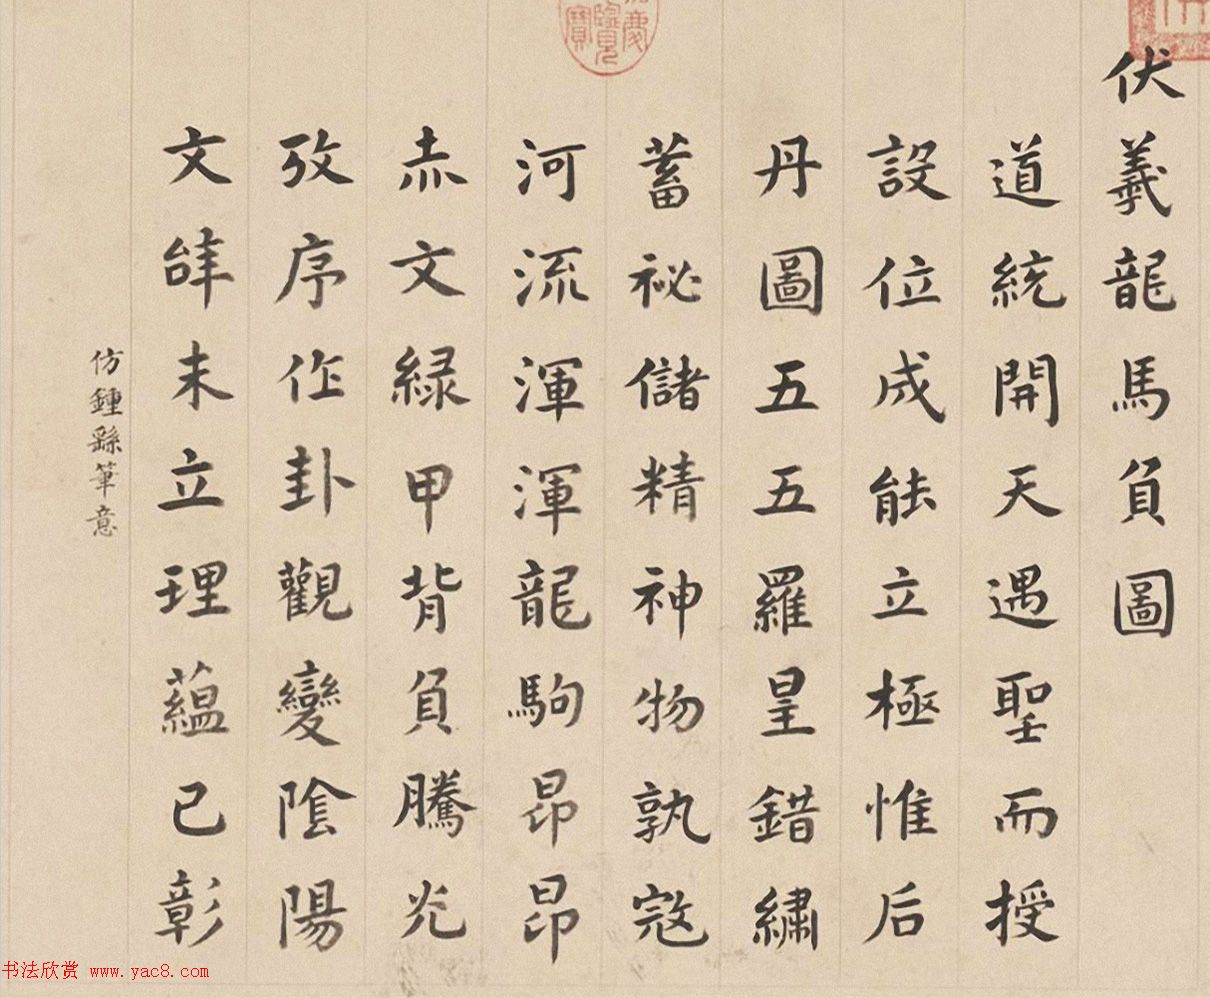 伏羲龍馬負圖
道統開天遇聖而授
設位成能立極惟后
丹圖五五羅皇錯繡
蓄祕儲精神物孰寇
河流渾渾龍駒昂昂
赤文緑甲背負騰光
攷序作卦觀變陰陽
文辞未立理蘊已彰
仿鍾繇筆意
覽
寶
慶
书法欣赏 www.yac8.com